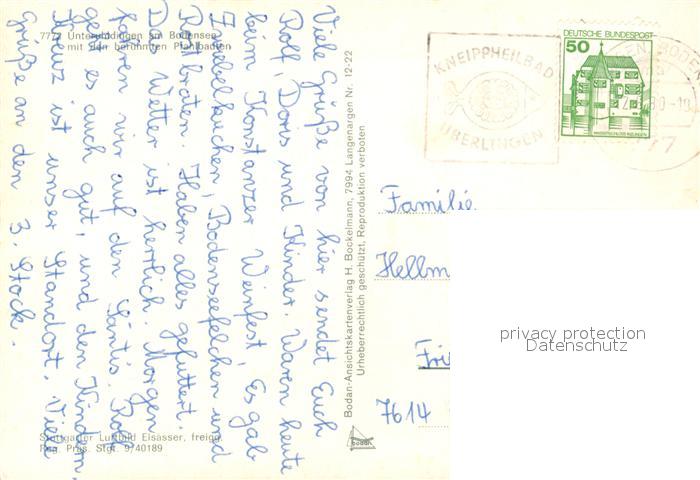 7772 Unteruhldingen am Bodensee
mit den berühmten Pfahlbauten
Viele Grüße von hier sendet Euch
Rolf, Doris und Kinder. Waren heute
beim Konstanzer Weinfest. Es gab
Zwiebelkuchen, Bodenseefelchen und
Rostbraten. Haben alles gefuttert.
Wetter ist herrlich. Morgen
fahren wir auf den Säntis. Rolf
geht es auch gut, und den Kindern.
Kreuz ist unser Standort. Viele
Grüße an den 3. Stock.
Stuttgarter Luftbild Elsässer, freigg.
Reg. Präs. Stgt. 9/40189
Bodan-Ansichtskartenverlag H. Bockelmann, 7994 Langenargen Nr. 12-22
Urheberrechtlich geschützt, Reproduktion verboten
bodan
KNEIPPHEILBAD
ÜBERLINGEN
DEUTSCHE BUNDESPOST
50
WASSERSCHLOSS INZLINGEN
Familie
Hellm
Fri
7614
privacy protection
Datenschutz